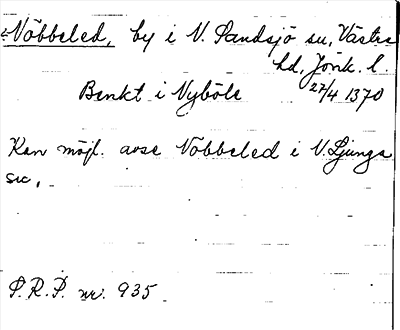 Nöbbeled, by i N. Sandsjö sn, Västra
hd, Jönk. l.
Benkt i Nyböle 27/4 1370
Kan möjl. avse Nöbbeled i N. Ljunga
sn,
S.R.P. nr. 935